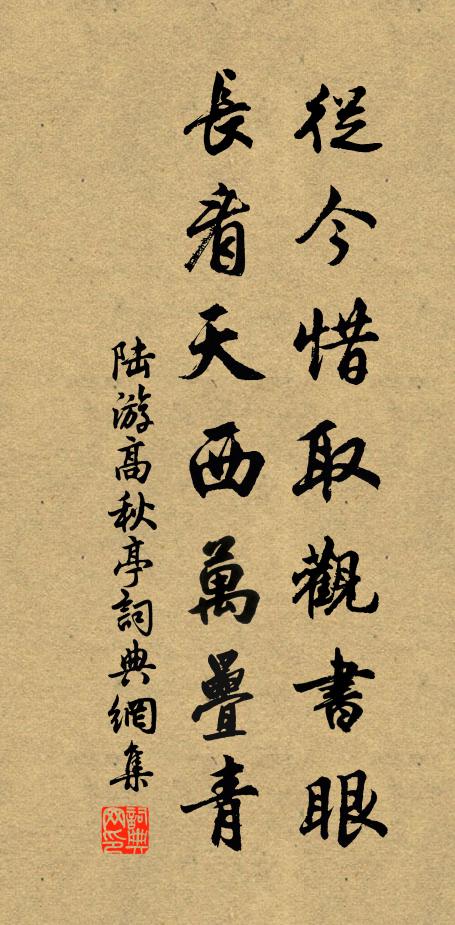 從今惜取觀書眼
長看天西萬疊青
陸游高秋亭詞典網集
詞典网印